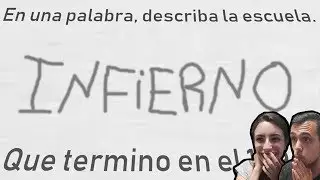 En una palabra, describa la escuela.
INFiERNO
Que termino en el